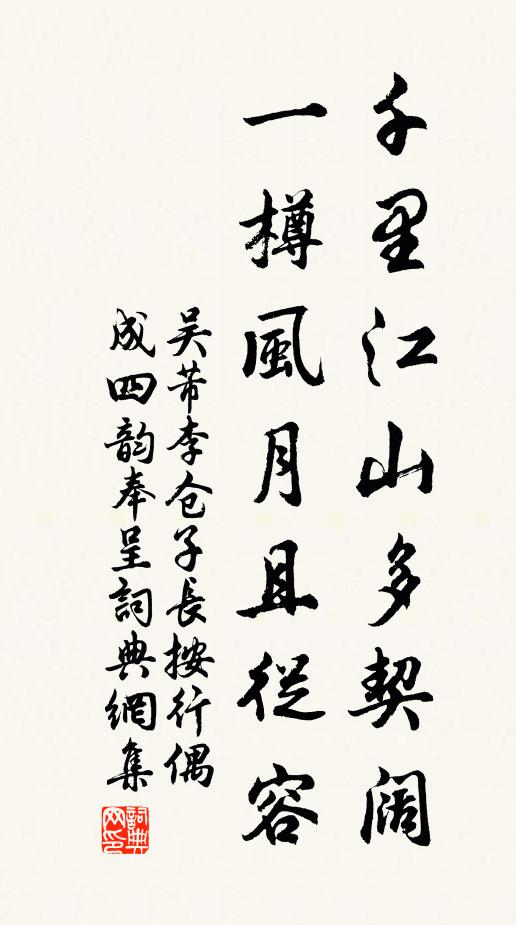 千里江山多契阔
一樽風月且從容
吴芾李仓子長按行偶
成四韵奉呈詞典網集
詞典
网印